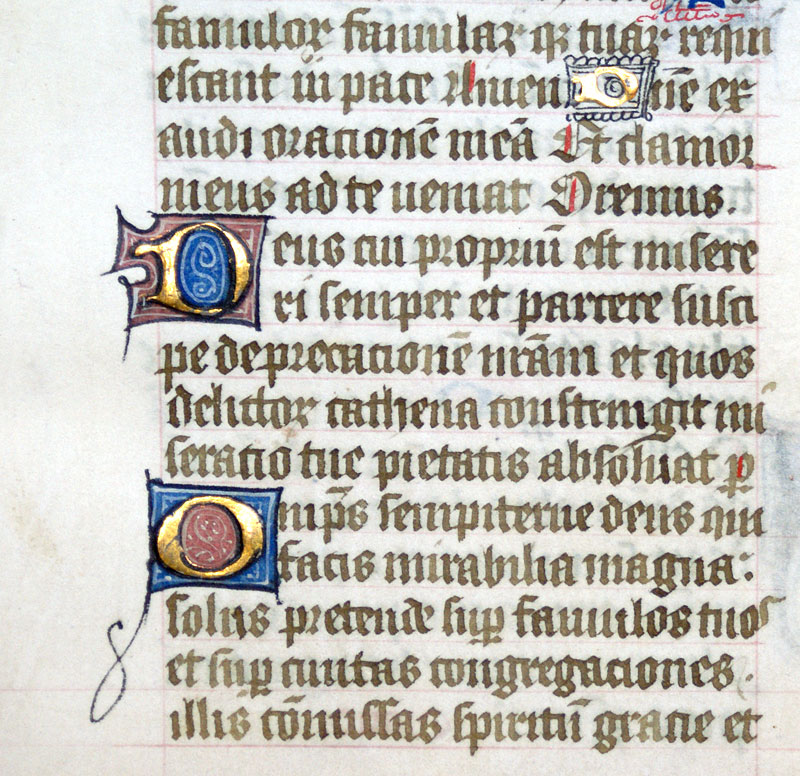 famulor famular q3 tuar requi
escant in pace Amen Dn̄e ex
audi oracionē meā Et clamor
meus ad te veniat Oremus.
Deus cui propriū est misere
ri semper et parcere susci
pe deprecacionē nr̄am et quos
delictor cathena constringit mi
seratio tue pietatis absoluat p̄
Omīps sempiterne deus qui
facis mirabilia magna:
solus pretende suꝑ famulos tuos
et suꝑ cuntas congregaciones.
illis cōmissas spiritū gracie et